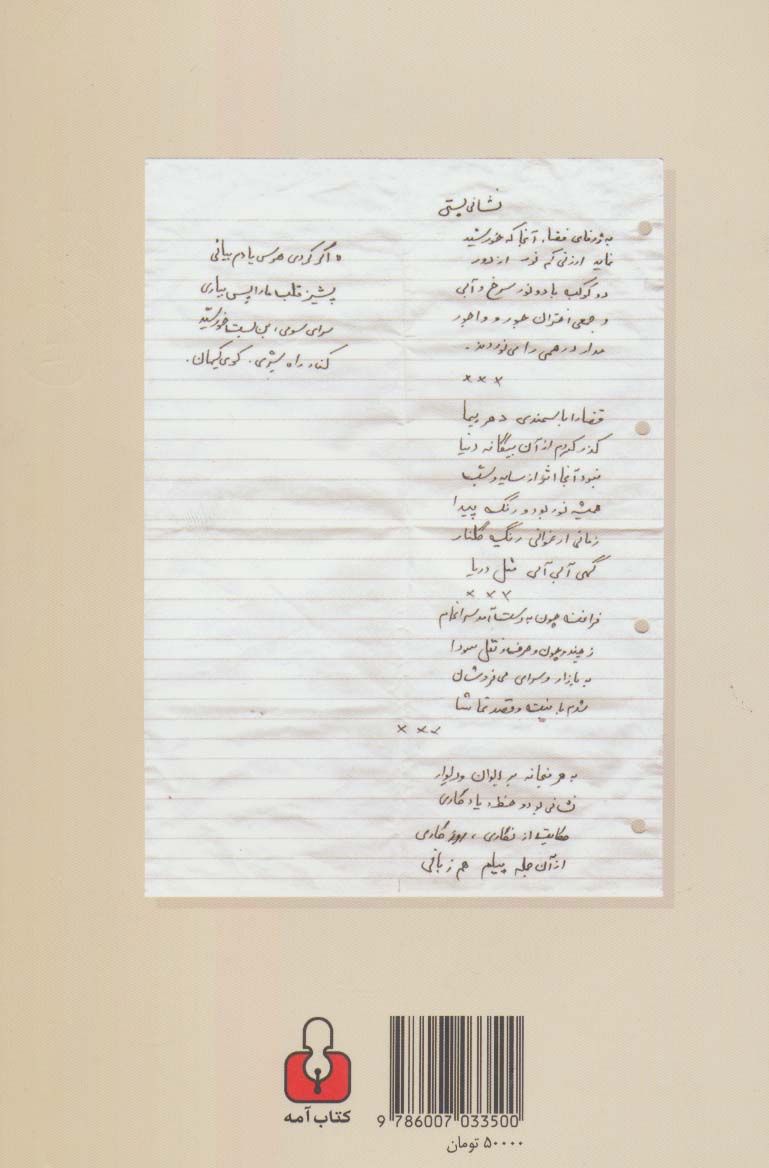 نشانی پستی
به ژرفنای فضا، آنجا که خورشید
نماید ارزنی کم نور از دور
دو کوکب با دو نور سرخ و آبی
و جمعی اختران جور و واجور
مدار درهمی را می‌نوردند.
×××
فضا را با سمندی دهر پیما
گذر کردم از آن بیگانه دنیا
نبود آنجا اثر از سایه و شب
همیشه نور بود و رنگ پیدا
زمانی ارغوانی رنگ گلنار
گهی آبی آبی مثل دریا
×××
فراغت چون به دست آمد سرانجام
ز چند و چون و حرف و نقل سودا
به بازار و سرای می فروشان
شدم با نیت و قصد تماشا
×××
به هر میخانه بر ایوان و دیوار
نشانی بود و خط یادگاری
حکایت از نگاری، روزگاری
از آن جمله پیام هم زبانی
اگر کردی هوس یادم بیائی
پشیز قلب ما را پس بیاری
سرای سومی، این سمت خورشید
کنار راه شیری. کوی کیهان.
کتاب آمه
9 786007 033500
۵۰۰۰۰ تومان